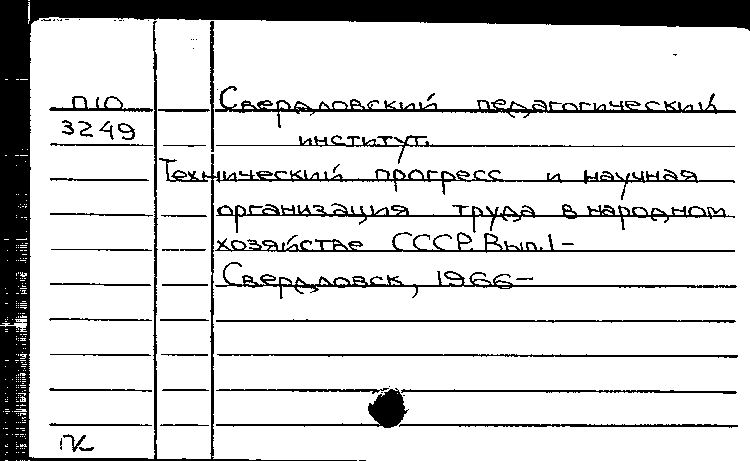 П10
3249
Свердловский педагогический
институт.
Технический прогресс и научная
организация труда в народном
хозяйстве СССР. Вып. 1-
Свердловск, 1966-
ПК